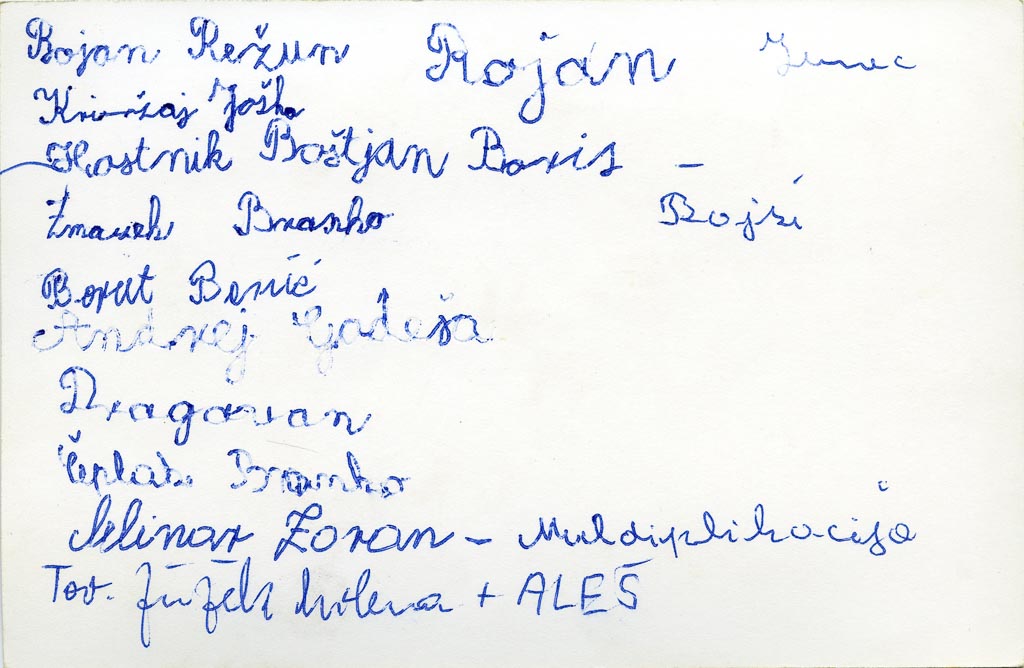 Bojan Režun Roján
Krivržaj Joško
Hostnik Boštjan Boris –
Zmavek Branko Bojsi
Borut Benić
Andrej Gadeša
Dragovan
Čeplak Branko
Mlinar Zoran – Muldiplikacija
Tov. Fùžek Milena + ALEŠ